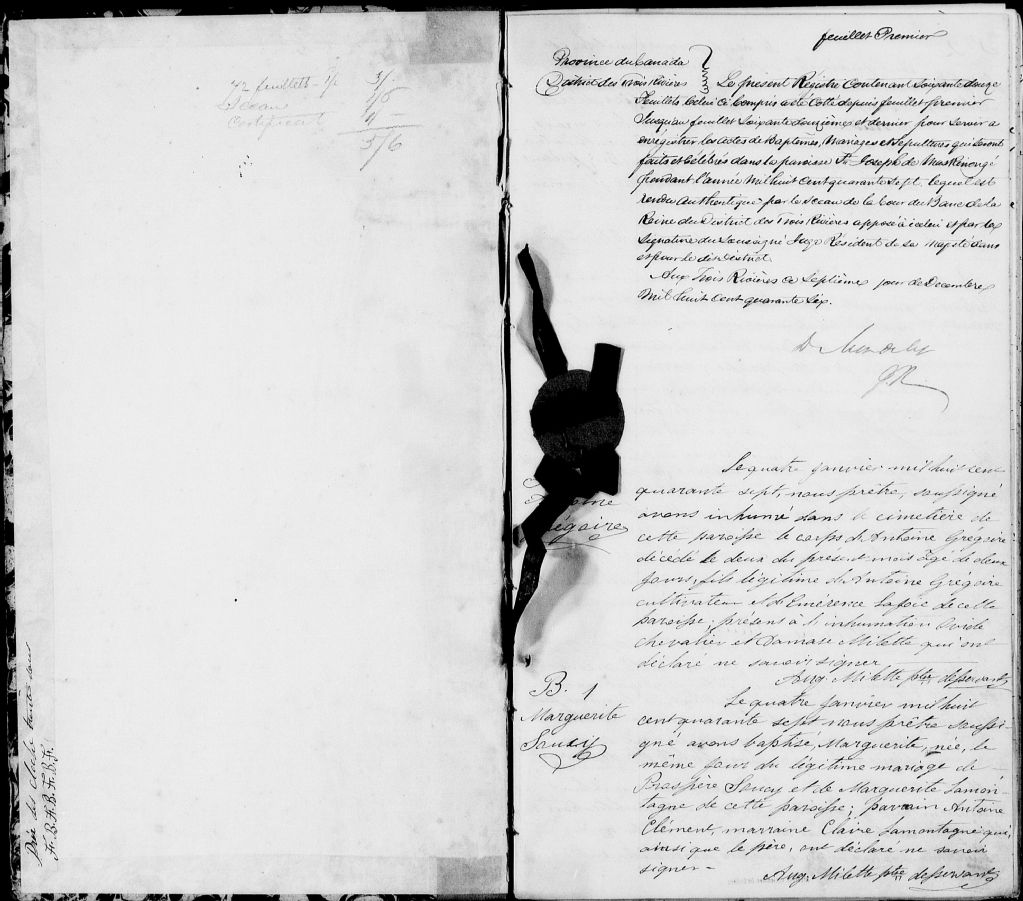 72 feuillets 3/.
Sceau
Certificat
5/6
feuillet Premier
Province du Canada
District des Trois Rivières
Le présent Registre Contenant Soixante douze
feuillets Celui Ci Compris a été Cotté depuis feuillet premier
Jusqu'au feuillet Soixante douzième et dernier pour Servir a
enrégistrer les actes de Baptêmes, Mariages et Sépultures qui seront
faits et Célébrés dans la paroisse St. Joseph de Maskinongé
pendant l'année Mil huit Cent quarante Sept, lequel est
rendu authentique par le Sceau de la Cour du Banc de la
Reine du District des Trois Rivières apposé à icelui et par la
Signature du Soussigné Juge Résident de Sa Majesté dans
et pour le dit District
Aux Trois Rivières Ce Septième jour de Decembre
Mil huit Cent quarante Six.
Le quatre janvier mil huit cent
quarante sept, nous prêtre, soussigné
avons inhumé dans le cimetière de
cette paroisse le corps d'Antoine Grégoire
décédé le deux du présent mois âgé de deux
jours, fils légitime d'Antoine Grégoire
cultivateur et d'Emérence Lafoie de cette
paroisse; présens à l'inhumation Ovide
Chevalier et Damase Milette qui ont
déclaré ne savoir signer
Aug. Milette ptre desservant
B. 1
Marguerite
Saucy
Le quatre janvier mil huit
cent quarante sept nous prêtre soussi-
gné avons baptisé Marguerite, née, le
même jour du légitime mariage de
Prospère Saucy et de Marguerite Lamon-
tagne de cette paroisse; parrain Antoine
Clément, marraine Claire Lamontagne qui,
ainsi que le père, ont déclaré ne savoir
signer -
Aug. Milette ptre desservant